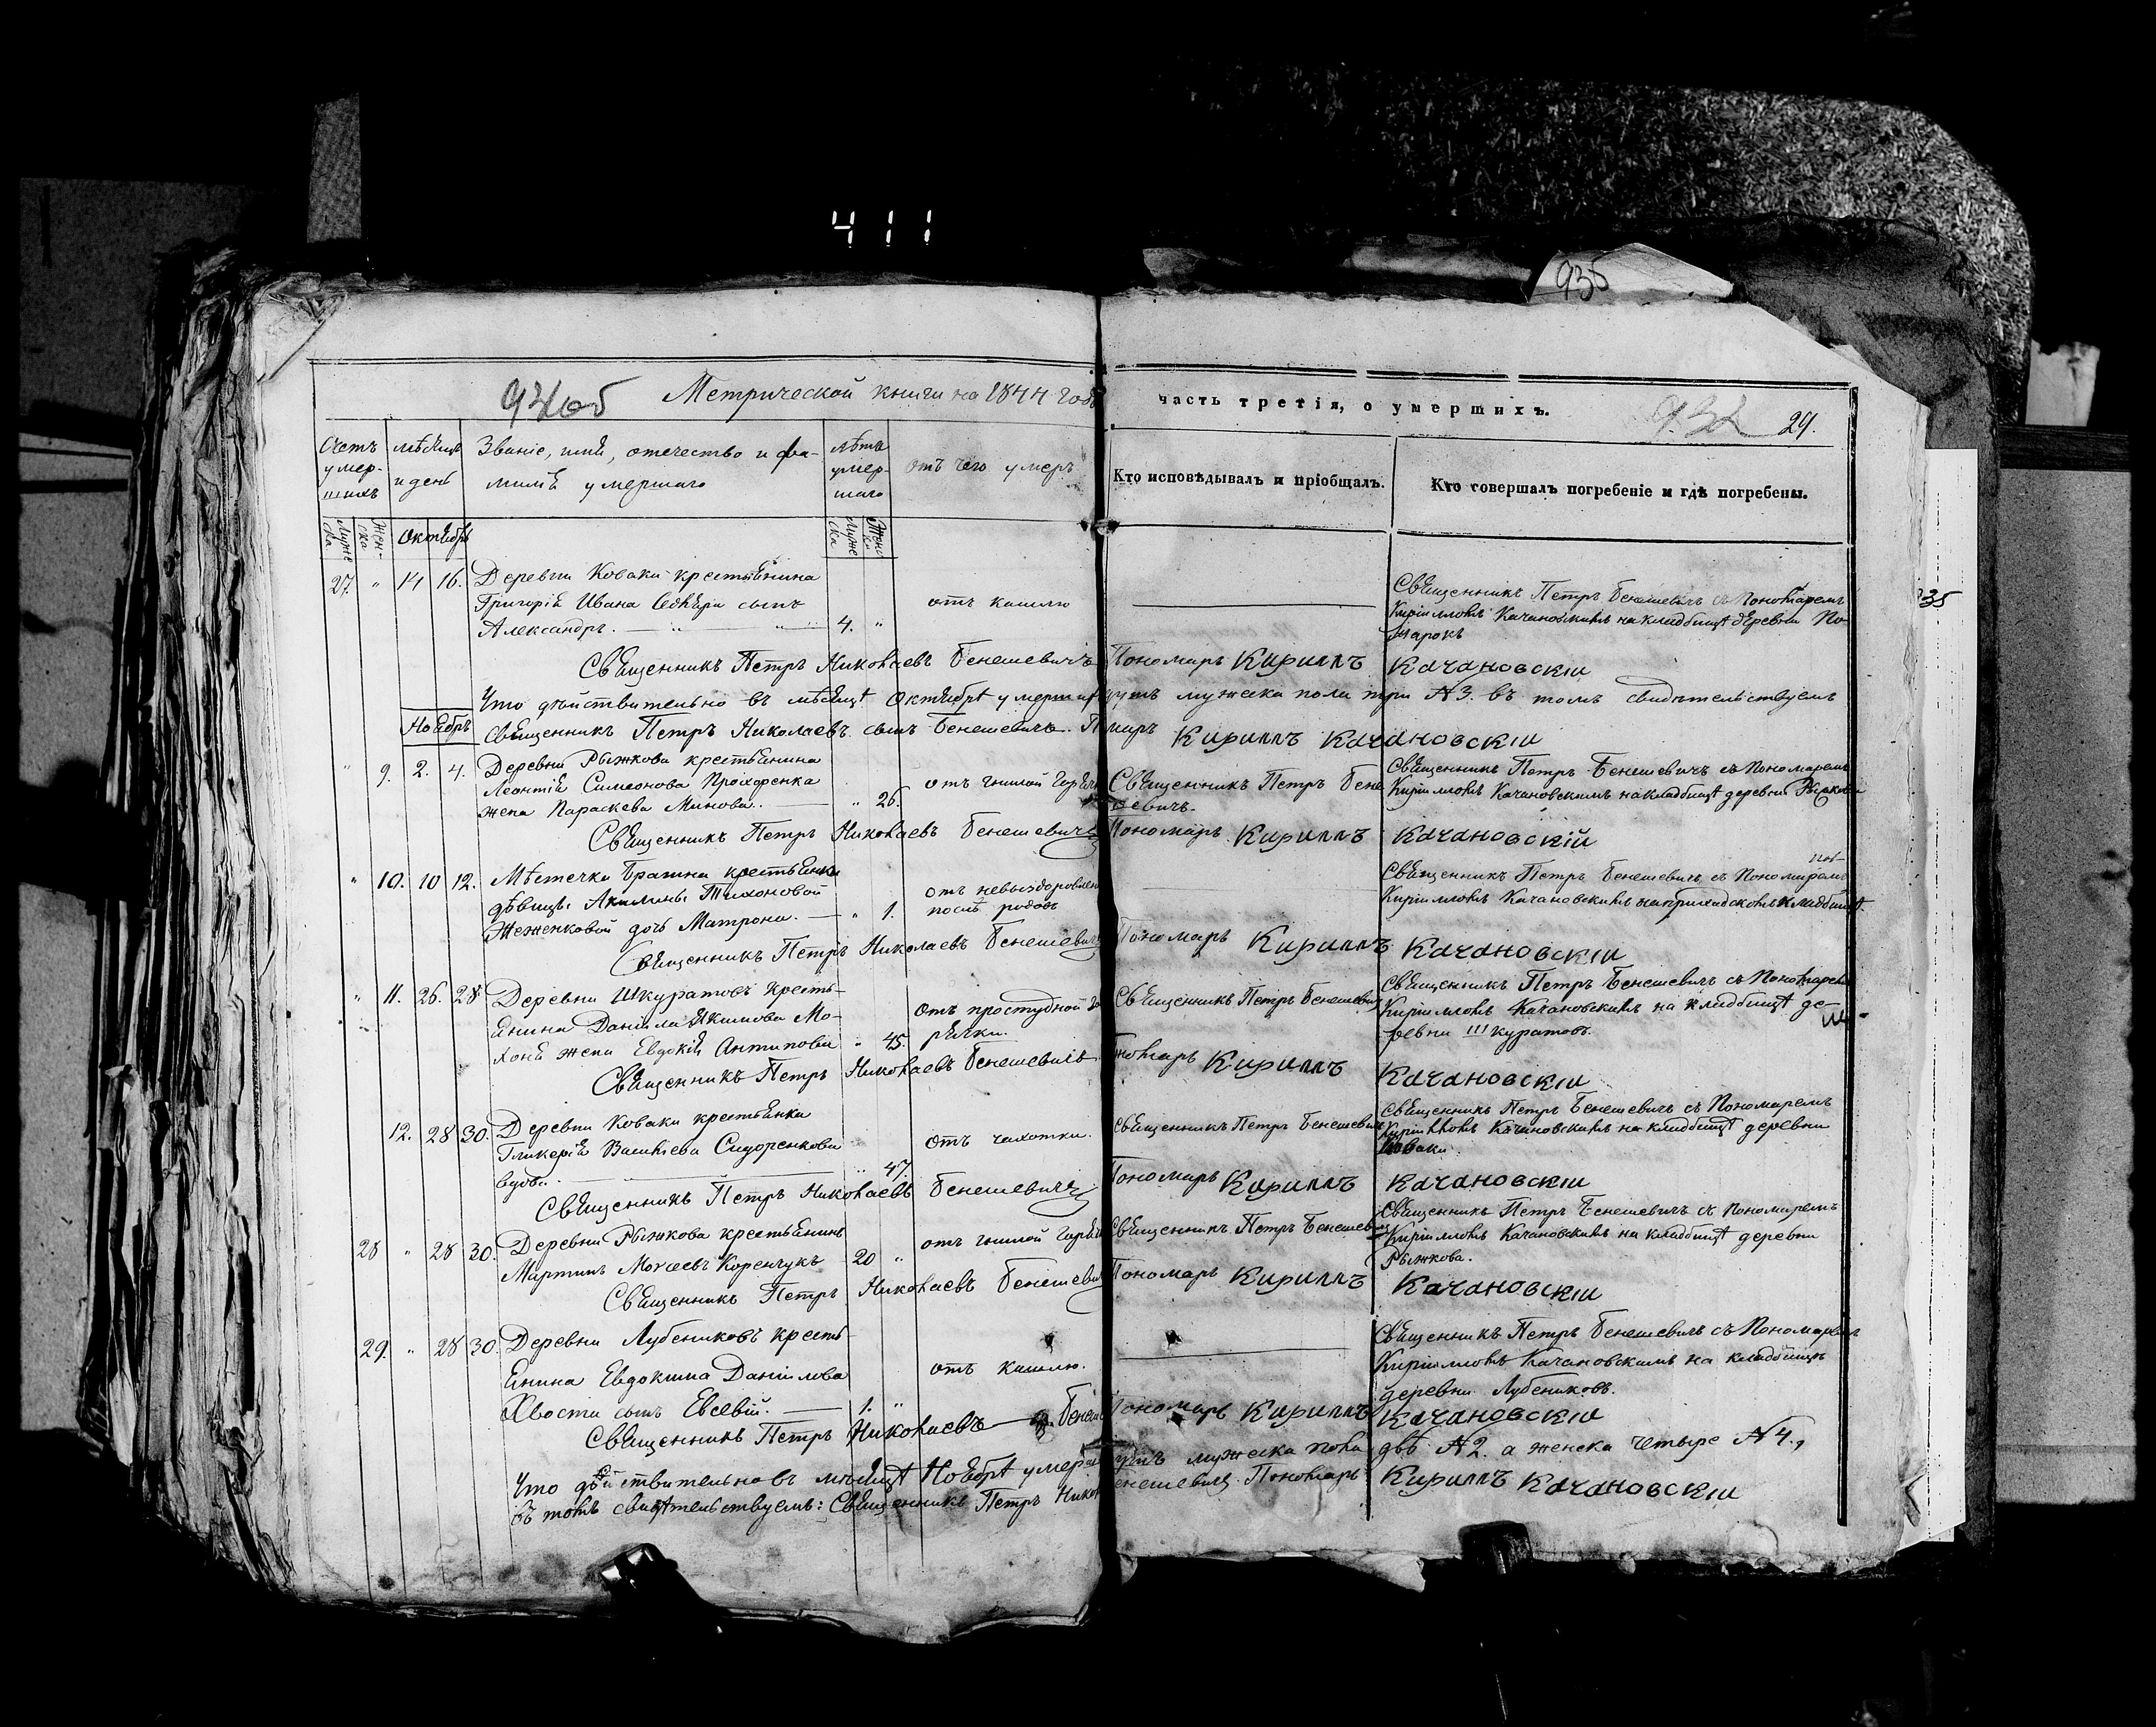 411
935
934об
Метрической книги на 1844 годъ
часть третія, о умершихъ.
932
29.
Счетъ умер-шихъ
мѣсяцъ и день
Званіе, имя, отечество и фа-
милія умершаго
лѣта умер-шаго
отъ чего умеръ
Кто исповѣдывалъ и пріобщалъ.
Кто совершалъ погребеніе и гдѣ погребены.
Муже ска
Жен-ска
Октябрь
Муже ска
Жен ска
27. " 14 16. Деревни Коваки крестьянина
Григорія Ивана сынъ
Александръ. 4. "
отъ кашлю
Священникъ Петръ Бенешевичъ съ Пономаремъ
Кирилломъ Качановскимъ на кладбищѣ деревни По-
жарокъ
Священникъ Петръ Николаевъ Бенешевичъ Пономарь Кириллъ Качановскіи
Что дѣйствительно въ мѣсяцѣ Октябрѣ умершихъ мужеска пола три №3. въ томъ свидѣтельствуемъ
Священникъ Петръ Николаевъ сынъ Бенешевичъ. Кириллъ Качановскіи
Ноябрь
" 9. 2. 4. Деревни Рыжкова крестьянина
Леонтія Симеонова Прохоренка
жена Параскева Минова. " 26.
отъ гнилой
Священникъ Петръ Бене
шевичъ.
Священникъ Петръ Бенешевичъ съ Пономаремъ
Кирилломъ Качановскимъ на кладбищѣ деревни Рыжкова
Священникъ Петръ Николаевъ Бенешевичъ Пономарь Кириллъ Качановскій
" 10. 10 12. Мѣстечка Брагина крестьянки
дѣвицы Акилины Тихоновой
дочь Матрона. " 1.
отъ
послѣ родовъ
Священникъ Петръ Бенешевичъ съ Пономаремъ
Кирилломъ Качановскимъ на приходскомъ кладбищѣ.
Священникъ Петръ Николаевъ Бенешевичъ Пономарь Кириллъ Качановскіи
" 11. 26. 28 Деревни Шкуратовъ кресть-
янина Даніила Якимова Мо-
жена Евдокія Антипова " 45.
отъ простудной го
рячки.
Священникъ Петръ Бенешевичъ
Священникъ Петръ Бенешевичъ съ Пономаремъ
Кирилломъ Качановскимъ на кладбищѣ де-
ревни Шкуратовъ.
Священникъ Петръ Николаевъ Бенешевичъ Кириллъ Качановскіи
12. 28 30. Деревни Коваки крестьянка
Гликерія Васильева Сидоренкова
вдова. " 47.
отъ чахотки.
Священникъ Петръ Бенешевичъ
Священникъ Петръ Бенешевичъ съ Пономаремъ
Кирилломъ Качановскимъ на кладбищѣ деревни
Коваки
Священникъ Петръ Николаевъ Бенешевичъ Пономарь Кириллъ Качановскіи
28 " 28 30. Деревни Рыжкова крестьянинъ
Мартинъ Моисеевъ Коренчукъ 20 "
отъ гнилой
Священникъ Петръ Бенешевичъ
Священникъ Петръ Бенешевичъ съ Пономаремъ
Кирилломъ Качановскимъ на кладбищѣ деревни
Рыжкова.
Священникъ Петръ Николаевъ Бенешевичъ Пономарь Кириллъ Качановскіи
29. " 28 30 Деревни Лубениковъ кресть-
янина Евдокима Даніилова
Хвоста сынъ Евсевій. 1. "
отъ кашлю.
Священникъ Петръ Бенешевичъ съ Пономаремъ
Кирилломъ Качановскимъ на кладбищѣ
деревни Лубениковъ.
Священникъ Петръ Николаевъ Пономарь Кириллъ Качановскіи
Что дѣйствительно въ мѣсяцѣ Ноябрѣ мужеска пола двѣ №2. а женска четыре №4.,
въ томъ свидѣтельствуемъ: Священникъ Петръ Пономарь Кириллъ Качановскіи